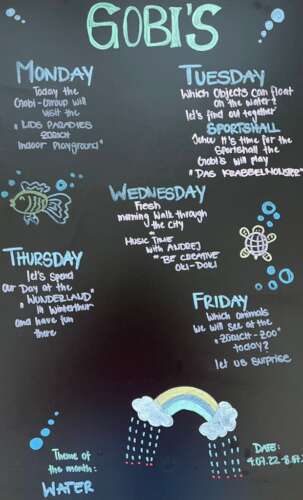 GOBI'S
MONDAY
Today the
Gobi-Group will
visit the
"KIDS PARADIES
ZÜRICH
Indoor Playground"
TUESDAY
Which Objects can float
on the water?
let's find out together
SPORTSHALL
it's time for the
Sportshall the
Gobi's will play
"DAS KRABBELMONSTER"
WEDNESDAY
Fresh
morning Walk through
the City
MUSIC TIME
with ANDREJ
"BE CREATIVE
OKI-DOKI
THURSDAY
let's spend
our Day at the
"WUNDERLAND"
in Winterthur
and have fun
there
FRIDAY
Which animals
we will see at the
"ZÜRICH-ZOO"
today?
let us surprise
Theme of
the month:
WATER
DATE:
4.07.22-8.07.